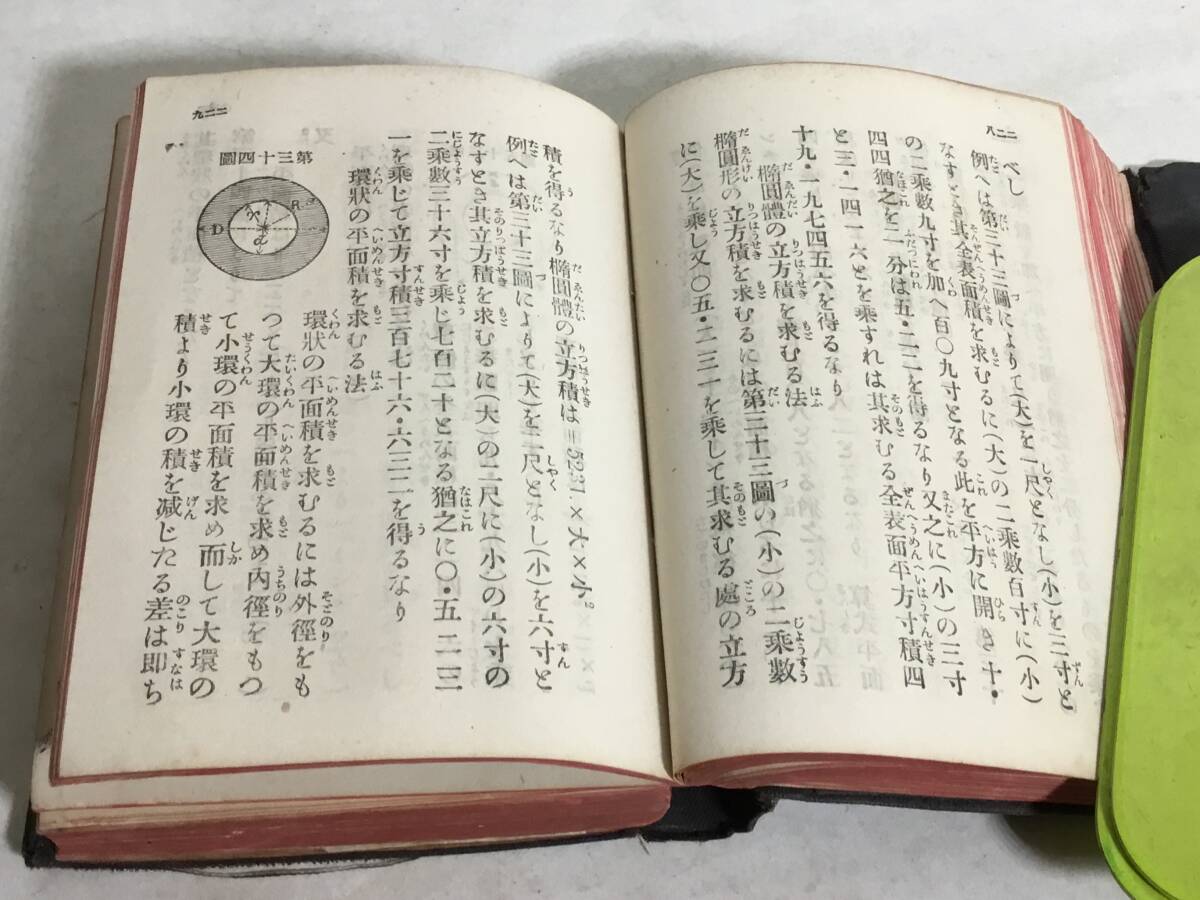 二二八
べし
例へは第三十三圖によりて(大)を一尺となし(小)を三寸と
なすとき其全表面積を求むるに(大)の二乘數百寸に(小)
の二乘數九寸を加へ百〇九寸となる此を平方に開き十・
四四猶之を二分は五・二二を得るなり又之に(小)の三寸
と三・一四一六とを乘すれは其求むる全表面平方寸積四
十九・一九七四五六を得るなり
橢圓體の立方積を求むる法
橢圓形の立方積を求むるには第三十三圖の(小)の二乘數
に(大)を乘し又〇五・二三一を乘して其求むる處の立方
二二九
積を得るなり橢圓體の立方積は=.5231.×大×小²
例へは第三十三圖によりて(大)を二尺となし(小)を六寸と
なすとき其立方積を求むるに(大)の二尺に(小)の六寸の
二乘數三十六寸を乘じ七百二十となる猶之に〇・五二三
一を乘じて立方寸積三百七十六・六三二を得るなり
環狀の平面積を求むる法
第三十四圖
R
D
d
環狀の平面積を求むるには外徑をも
つて大環の平面積を求め內徑をもつ
て小環の平面積を求め而して大環の
積より小環の積を减じたる差は即ち